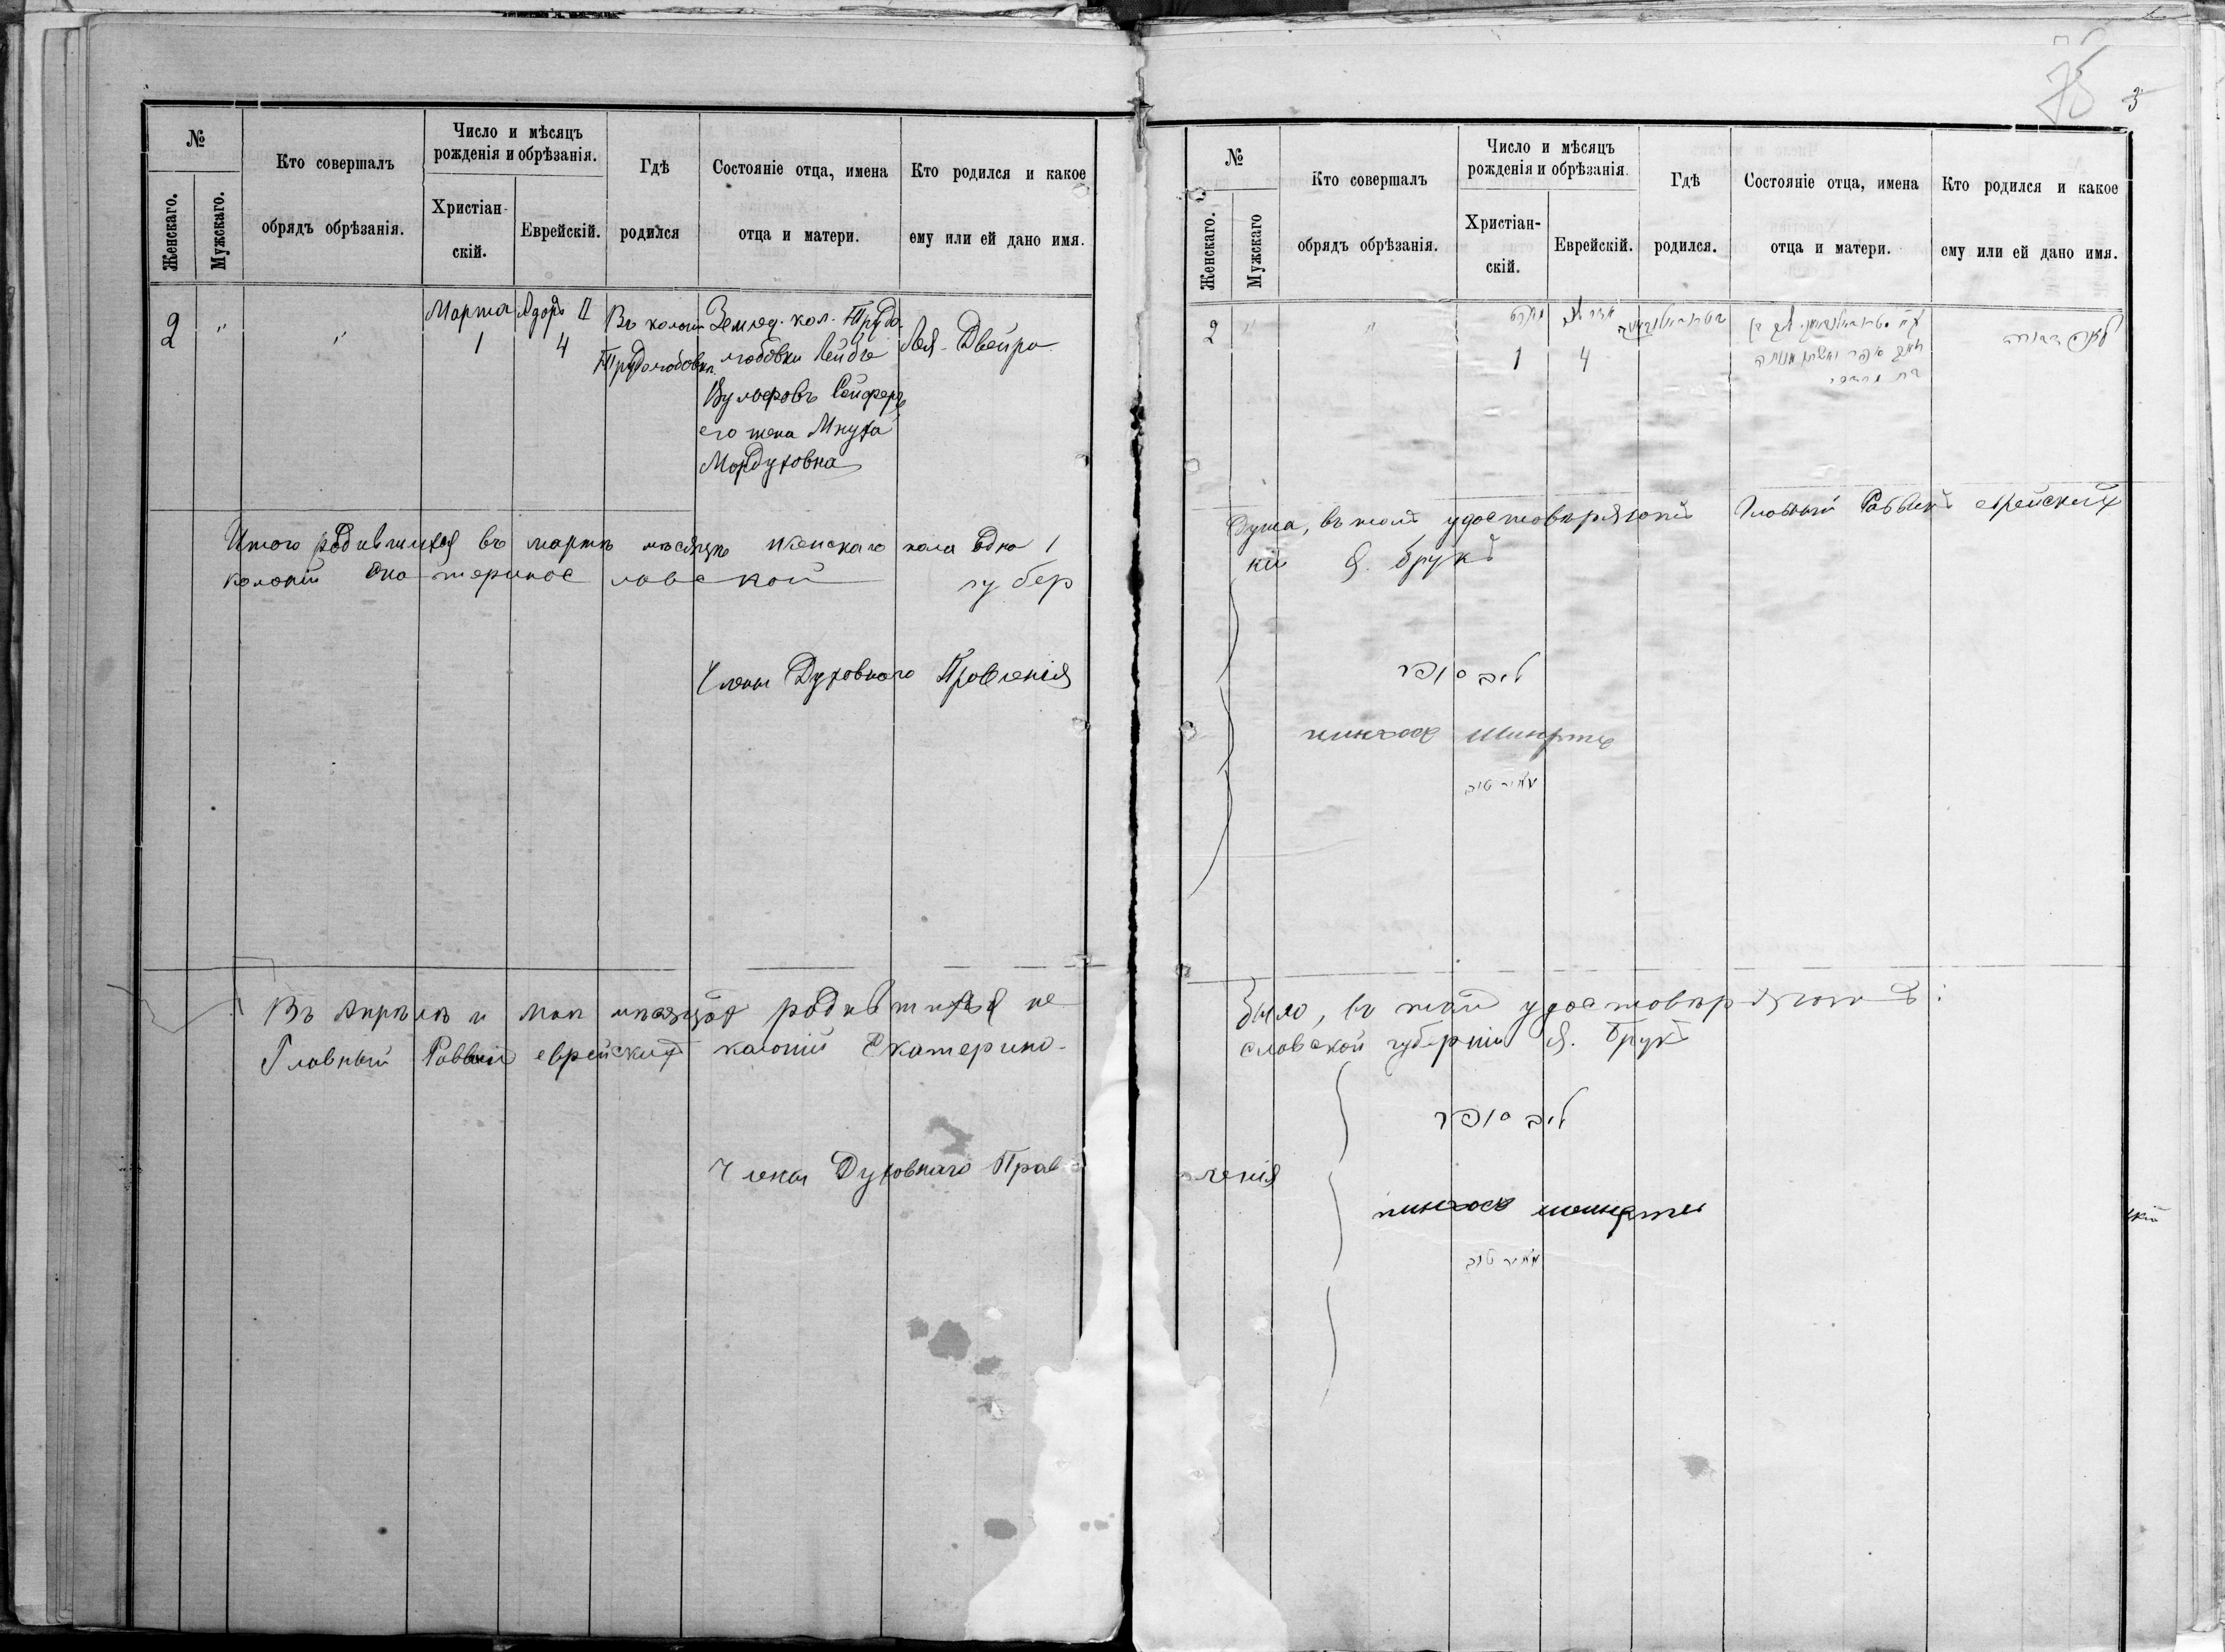 75 3
№
Женскаго.
Мужскаго.
Кто совершалъ
обрядъ обрѣзанія.
Число и мѣсяцъ
рожденія и обрѣзанія.
Христіан-
скій.
Еврейскій.
Гдѣ
родился
Состояніе отца, имена
отца и матери.
Кто родился и какое
ему или ей дано имя.
2 " "
Марта
1
Адоръ II
4
Въ колоніи
Трудолюбовка
Землед. кол. Трудо-
любовки Лейбъ
Вульфовъ Сойферъ
его жена Мнуха
Мордуховна
Лея-Двейра
Итого родившихся въ мартѣ мѣсяцѣ женскаго пола одна 1
колоній Екатеринославской губер
Члены Духовнаго Правленія
Въ Апрѣлѣ и маѣ мѣсяцахъ родившихся не
Главный Раввинъ еврейскихъ колоній Екатерино-
Члены Духовнаго Прав
№
Женскаго.
Мужскаго
Кто совершалъ
обрядъ обрѣзанія.
Число и мѣсяцъ
рожденія и обрѣзанія.
Христіан-
скій.
Еврейскій.
Гдѣ
родился.
Состояніе отца, имена
отца и матери.
Кто родился и какое
ему или ей дано имя.
2 " "
1
4
душа, въ томъ удостовѣряютъ Главный Раввинъ еврейскихъ
ніи Я. Брукъ
ליב סופר
מאיר טוב
было, въ томъ удостовѣряютъ:
славской губерніи Я. Брукъ
ליב סופר
ленія
מאיר טוב